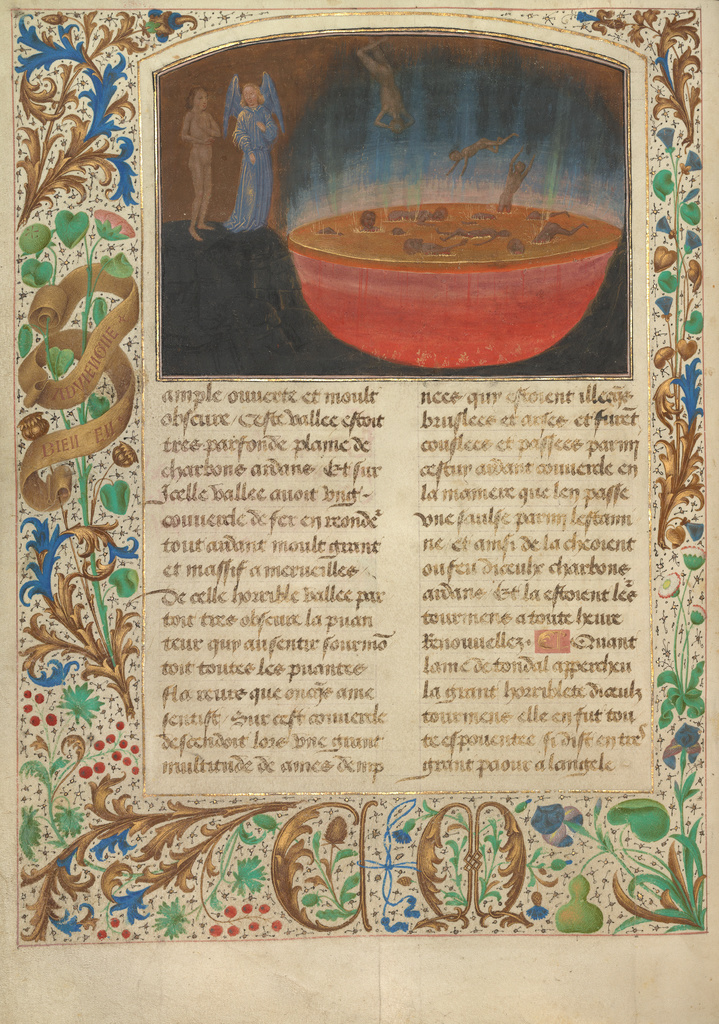 ample ouverte et moult
obscure / Ceste vallee estoit
tres parfonde plaine de
charbons ardans Et sur
Icelle vallee avoit ung
couvercle de fer en ronde
tout ardant moult grant
et massif a merveilles
De celle horrible vallee par
tout tres obscure la puan
teur qui
toit toutes les puantes
fla que oncqs ame
sentist / Sur cest couvercle
descendoit lors une grant
multitude de ames demp
nees qui estoient illecqs
bruslees et arses et furet
coulees et passees parmi
cestui ardant couvercle en
la maniere que len passe
une saulse parmi lestami
ne et ainsi de la cheoient
ou feu diceulx charbons
ardans Et la estoient les
tourmens a toute heure
Renouvellez. Quant
lame de tondal apperchu
la grant horriblete diceulz
tourmens elle en fut tou
te espouentee si dist en tres
grant paour a langele
BIEN EN
ADVIENGNE
C M